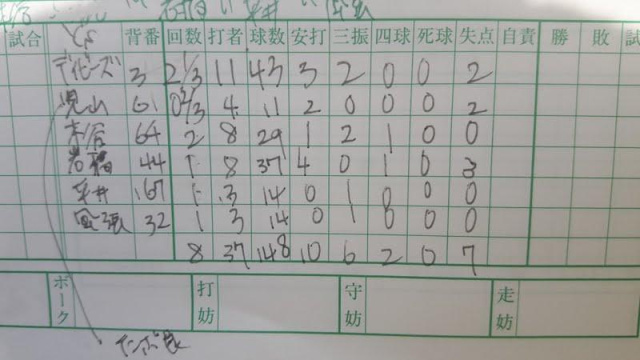 試合 背番 回数 打者 球数 安打 三振 四球 死球 失点 自責 勝 敗 試
デイビーズ 3 2 1/3 11 43 3 2 0 0 2
児山 61 0 2/3 4 11 2 0 0 0 2
木谷 64 2 8 29 1 2 1 0 0
岩橋 44 1 8 37 4 0 1 0 3
平井 167 1 3 14 0 1 0 0 0
32 1 3 14 0 1 0 0 0
8 37 148 10 6 2 0 7
ボーク 打妨 守妨 走妨